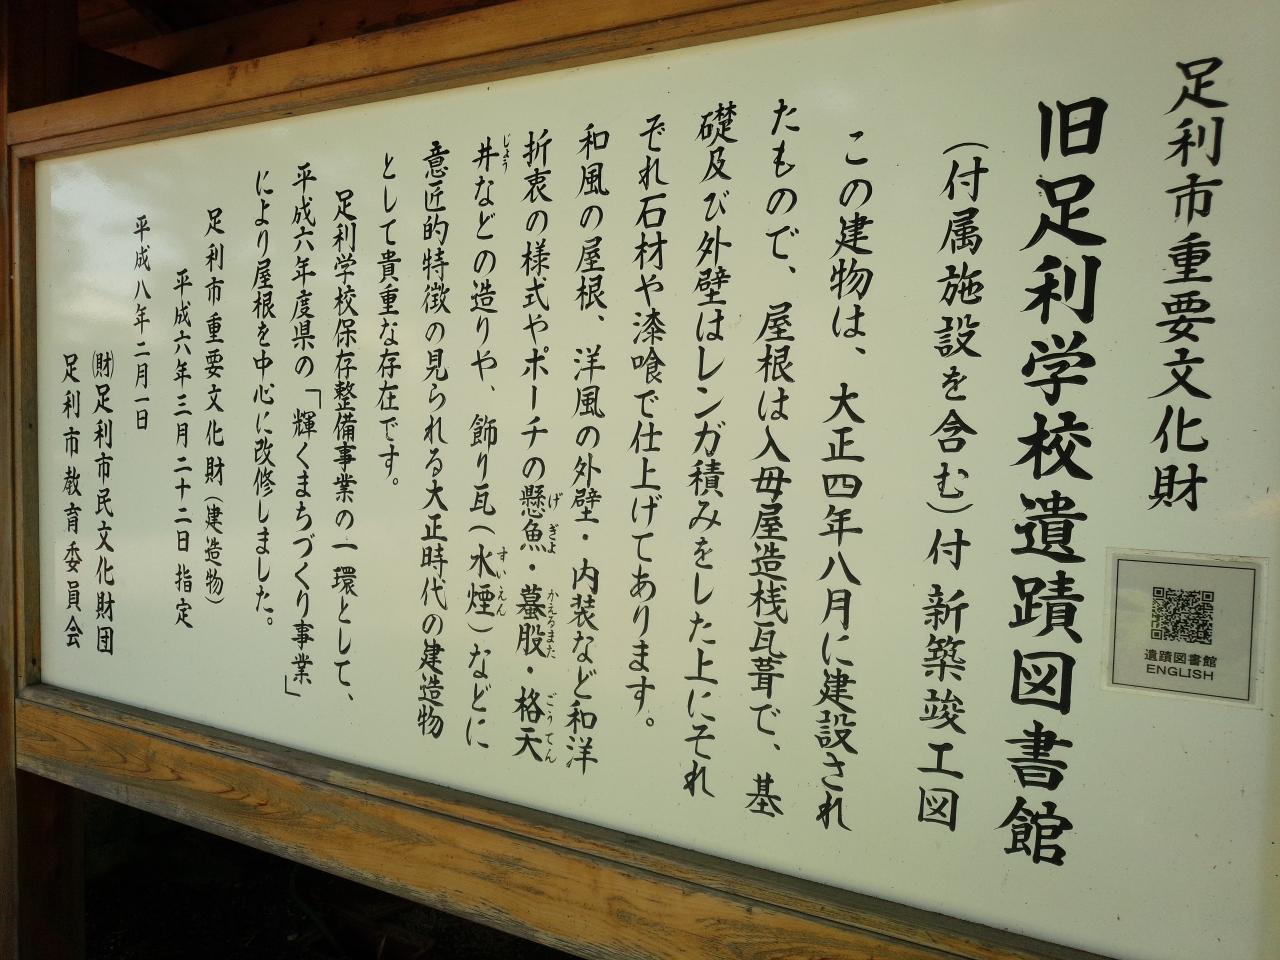 足利市重要文化財
旧足利学校遺蹟図書館
（付属施設を含む）付 新築竣工図
この建物は、大正四年八月に建設され
たもので、屋根は入母屋造桟瓦葺で、基
礎及び外壁はレンガ積みをした上にそれ
ぞれ石材や漆喰で仕上げてあります。
和風の屋根、洋風の外壁・内装など和洋
折衷の様式やポーチの懸魚・蟇股・格天
げぎょ
かえるまた
ごうてん
井などの造りや、飾り瓦（水煙）などに
じょう
すいえん
意匠的特徴の見られる大正時代の建造物
として貴重な存在です。
足利学校保存整備事業の一環として、
平成六年度県の「輝くまちづくり事業」
により屋根を中心に改修しました。
足利市重要文化財（建造物）
平成六年三月二十二日指定
平成八年二月一日
㈶足利市民文化財団
足利市教育委員会
遺蹟図書館
ENGLISH